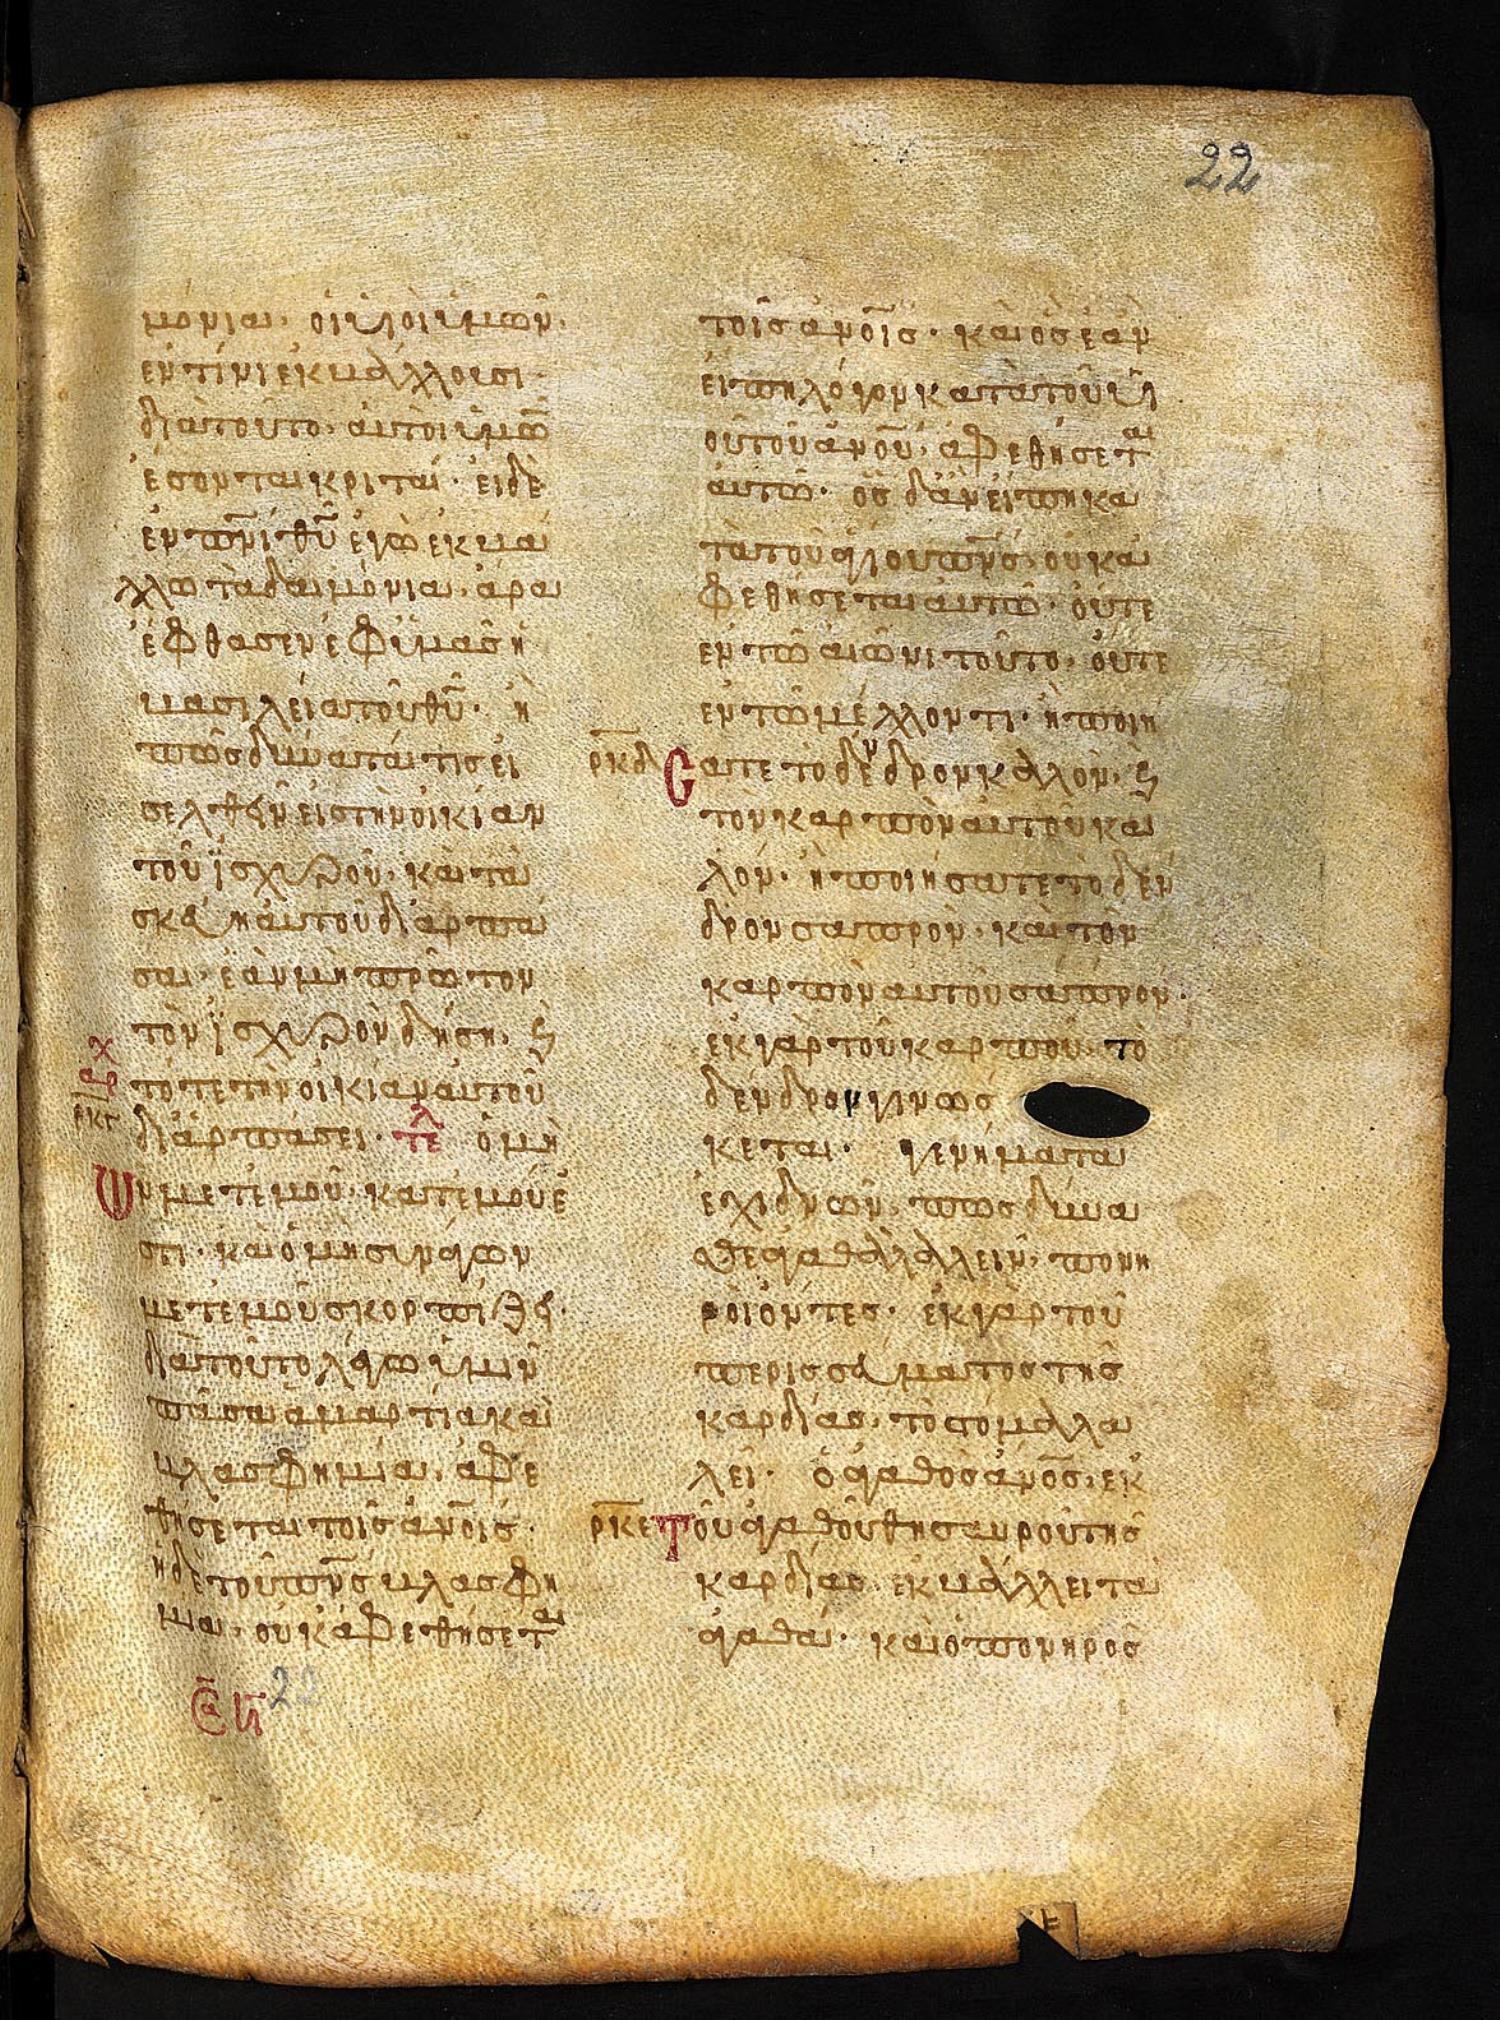 22
μόνια· οἱ υἱοὶ ὑμῶν·
ἐν τίνι ἐκβάλλουσι·
διατοῦτο· αὐτοὶ ὑμῶ̅
ἔσονται κριταί· εἰ δὲ
ἐν π̅ν̅ι̅ θ̅υ̅ ἐγὼ ἐκβά
λλω τὰ δαιμόνια· ἄρα
ἔφθασεν ἐφ ὑμᾶς ἡ
βασιλεία τοῦ θ̅υ̅· ἢ
πῶς δύναταί τις εἰ
σελθεῖν εἰς τὴν οἰκίαν
τοῦ ἰσχυροῦ· καὶ τὰ
σκεύη αὐτοῦ διαρπά
σαι· ἐὰν μὴ πρῶτον
τὸν ἰσχυρὸν δήση· ϗ
τότε τὴν οἰκίαν αὐτοῦ
ρκγ
διαρπάσει· τε λ ὁ μὴ
ὢν μετ ἐμοῦ· κατ ἐμοῦ ἐ
στι· καὶ ὁ μὴ συνάγων
μετ ἐμοῦ σκορπίζει·
διατοῦτο λέγω ὑμῖν
πᾶσα ἁμαρτία καὶ
βλασφημία· ἀφε
θήσεται τοῖς ἀν̅οις·
ἡ δὲ τοῦ π̅ν̅ς̅ βλασφη
μία· οὐκ ἀφεθήσετ αι
22
τοῖς ἀν̅οις· καὶ ὃς ἐὰν
εἴπη λόγον κατὰ τοῦ υἱ
οῦ τοῦ ἀν̅ου· ἀφεθήσετ αι
αὐτῶ· ὃς δ ἂν εἴπη κα
τὰ τοῦ ἁγίου π̅ν̅ς̅· οὐκ ἀ
φεθήσεται αὐτῶ· οὔτε
ἐν τῶ αἰῶνι τούτο· οὔτε
ἐν τῶ μέλλοντι· ἢ ποιή
ρκδ
σατε τὸ δένδρον καλὸν· ϗ
τὸν καρπὸν αὐτοῦ κα
λόν· ἢ ποιήσατε τὸ δέν
δρον σαπρὸν· καὶ τὸν
καρπὸν αὐτοῦ σαπρόν·
ἐκ γὰρ τοῦ καρποῦ· τὸ
δένδρον γινώσ
κεται· γενήματα
ἐχιδνῶν· πῶς δύνα
σθε ἀγαθὰ λαλεῖν· πονη
ροὶ ὄντες· ἐκ γὰρ τοῦ
περισσεύματος τῆς
καρδίας· τὸ στόμα λα
λεῖ· ὁ ἀγαθὸς ἄν̅ος· ἐκ
ρκε
τοῦ ἀγαθοῦ θησαυροῦ τῆς
καρδίας ἐκβάλλει τὰ
ἀγαθά· καὶ ὁ πονηρὸς